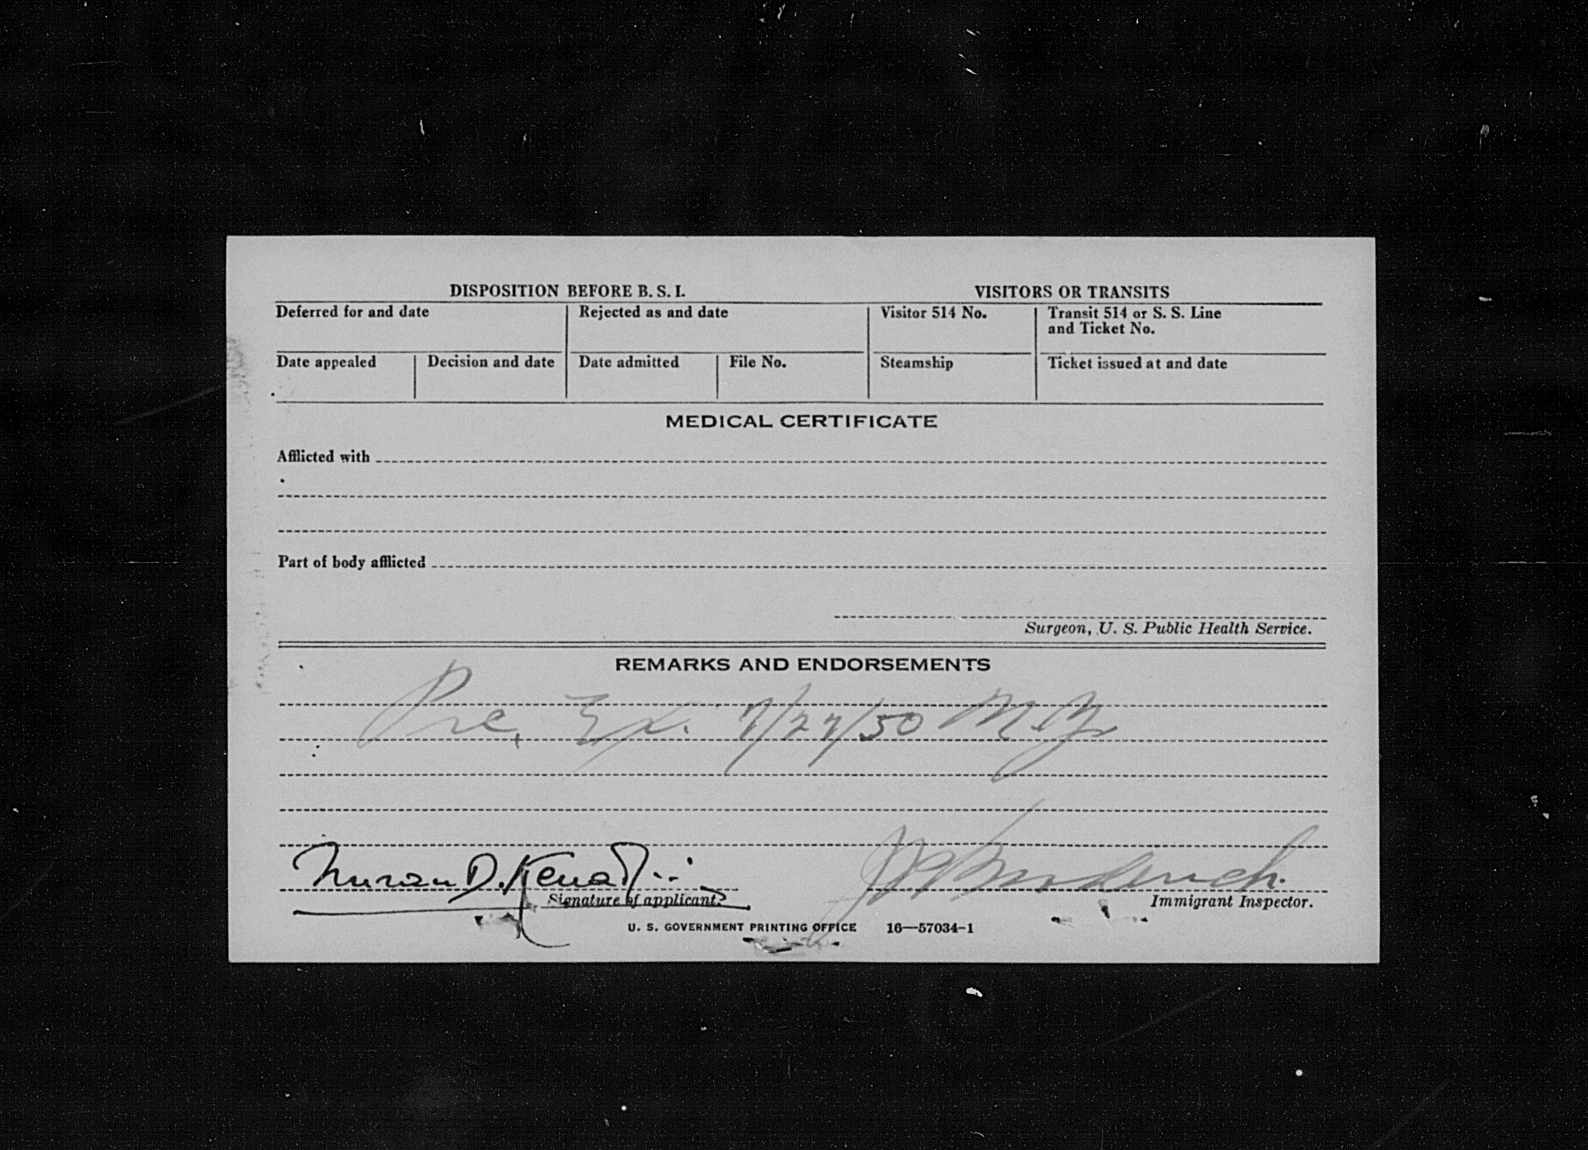 DISPOSITION BEFORE B. S. I. VISITORS OR TRANSITS
Deferred for and date Rejected as and date Visitor 514 No. Transit 514 or S. S. Line and Ticket No.
Date appealed Decision and date Date admitted File No. Steamship Ticket issued at and date
MEDICAL CERTIFICATE
Afflicted with
Part of body afflicted
Surgeon, U. S. Public Health Service.
REMARKS AND ENDORSEMENTS
Pre. Ex. 7/27/50
D.
Signature of applicant. Immigrant Inspector.
U. S. GOVERNMENT PRINTING OFFICE 16—57034-1